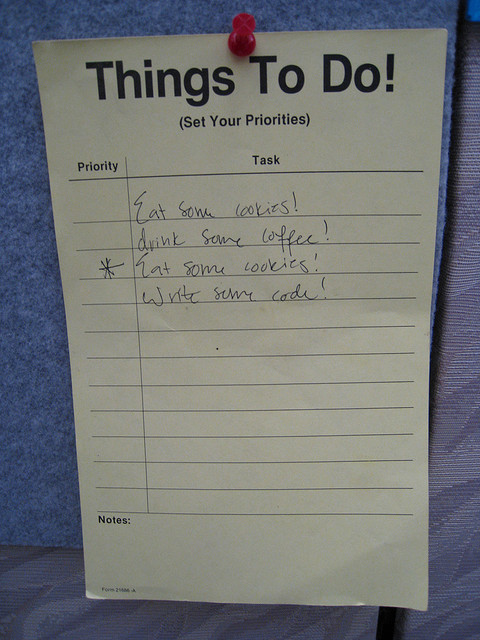 Things To Do!
(Set Your Priorities)
Priority Task
Eat some cookies!
drink some coffee!
* Eat some cookies!
Write some code!
Notes: